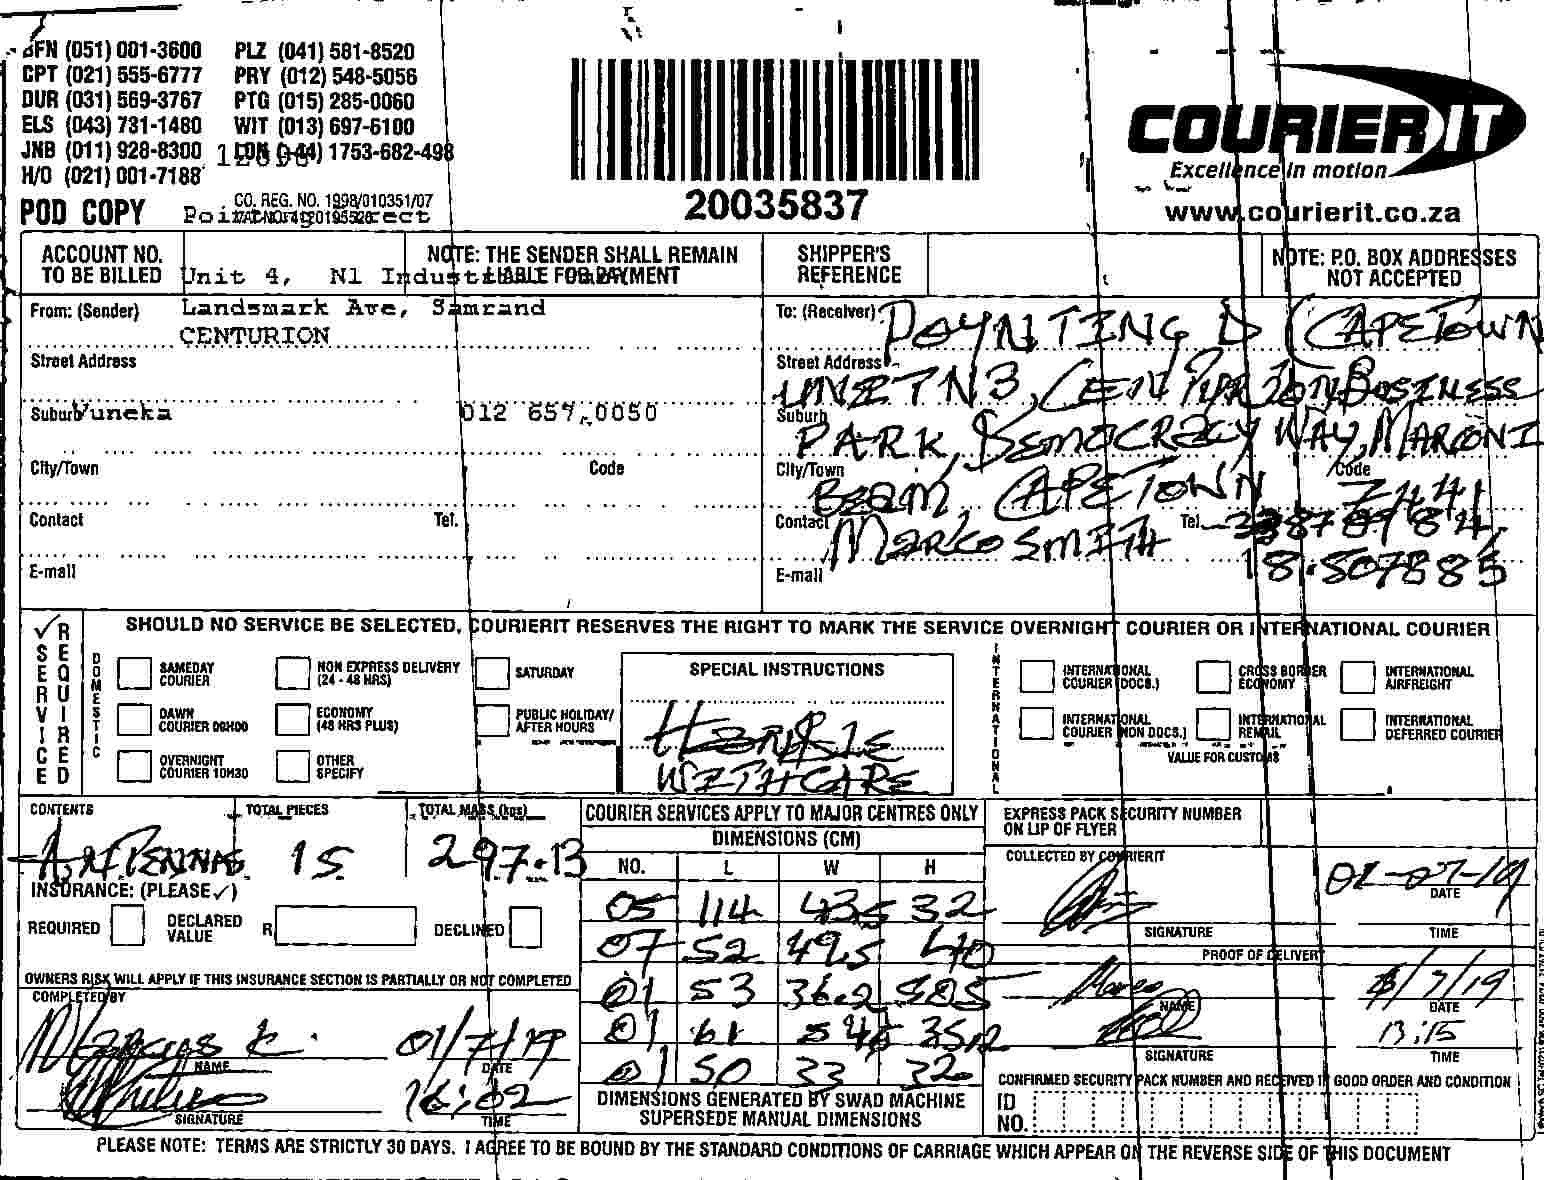 BFN (051) 001-3600 PLZ (041) 581-8520
CPT (021) 555-6777 PRY (012) 548-5056
DUR (031) 569-3767 PTG (015) 285-0060
ELS (043) 731-1480 WIT (013) 697-6100
JNB (011) 928-8300 LON (+44) 1753-682-498
H/O (021) 001-7188
CO. REG. NO. 1998/010351/07
POD COPY
20035837
COURIER IT
Excellence in motion
www.courierit.co.za
ACCOUNT NO. TO BE BILLED
NOTE: THE SENDER SHALL REMAIN LIABLE FOR PAYMENT
SHIPPER'S REFERENCE
NOTE: P.O. BOX ADDRESSES NOT ACCEPTED
Unit 4, N1
From: (Sender) Landsmark Ave, Samrand
CENTURION
Street Address
Suburb Vuneka 012 657 0050
City/Town Code
Contact Tel.
E-mail
To: (Receiver) POYNTING D (CAPETOWN
Street Address UNIT N3, CENTURION BUSINESS
Suburb PARK, DEMOCRACY WAY, MARCONI
City/Town BEAM, CAPETOWN Code 7441
Contact MARCO SMITH Tel.
E-mail 18.507885
✓ SERVICE REQUIRED
SHOULD NO SERVICE BE SELECTED, COURIERIT RESERVES THE RIGHT TO MARK THE SERVICE OVERNIGHT COURIER OR INTERNATIONAL COURIER
DOMESTIC
SAMEDAY COURIER
NON EXPRESS DELIVERY (24 - 48 HRS)
SATURDAY
DAWN COURIER 09H00
ECONOMY (48 HRS PLUS)
PUBLIC HOLIDAY/ AFTER HOURS
OVERNIGHT COURIER 10H30
OTHER SPECIFY
SPECIAL INSTRUCTIONS
HANDLE
WITH CARE
INTERNATIONAL
INTERNATIONAL COURIER (DOCS.)
CROSS BORDER ECONOMY
INTERNATIONAL AIRFREIGHT
INTERNATIONAL COURIER (NON DOCS.)
INTERNATIONAL REMAIL
INTERNATIONAL DEFERRED COURIER
VALUE FOR CUSTOMS
CONTENTS TOTAL PIECES TOTAL MASS (kgs)
ANTENNAS 15 297.13
INSURANCE: (PLEASE ✓)
REQUIRED DECLARED VALUE R DECLINED
OWNERS RISK WILL APPLY IF THIS INSURANCE SECTION IS PARTIALLY OR NOT COMPLETED
COMPLETED BY
01/7/19
NAME DATE
16:02
SIGNATURE TIME
COURIER SERVICES APPLY TO MAJOR CENTRES ONLY
DIMENSIONS (CM)
NO. L W H
05 114 43,5 32
07 52 49,5 40
01 53 36.2 50,5
01 61 54,5 35,2
01 50 33 32
DIMENSIONS GENERATED BY SWAD MACHINE SUPERSEDE MANUAL DIMENSIONS
EXPRESS PACK SECURITY NUMBER ON LIP OF FLYER
COLLECTED BY COURIERIT
DATE
SIGNATURE TIME
PROOF OF DELIVERY
Marco
NAME DATE
13:15
SIGNATURE TIME
CONFIRMED SECURITY PACK NUMBER AND RECEIVED IN GOOD ORDER AND CONDITION
ID NO.
PLEASE NOTE: TERMS ARE STRICTLY 30 DAYS. I AGREE TO BE BOUND BY THE STANDARD CONDITIONS OF CARRIAGE WHICH APPEAR ON THE REVERSE SIDE OF THIS DOCUMENT